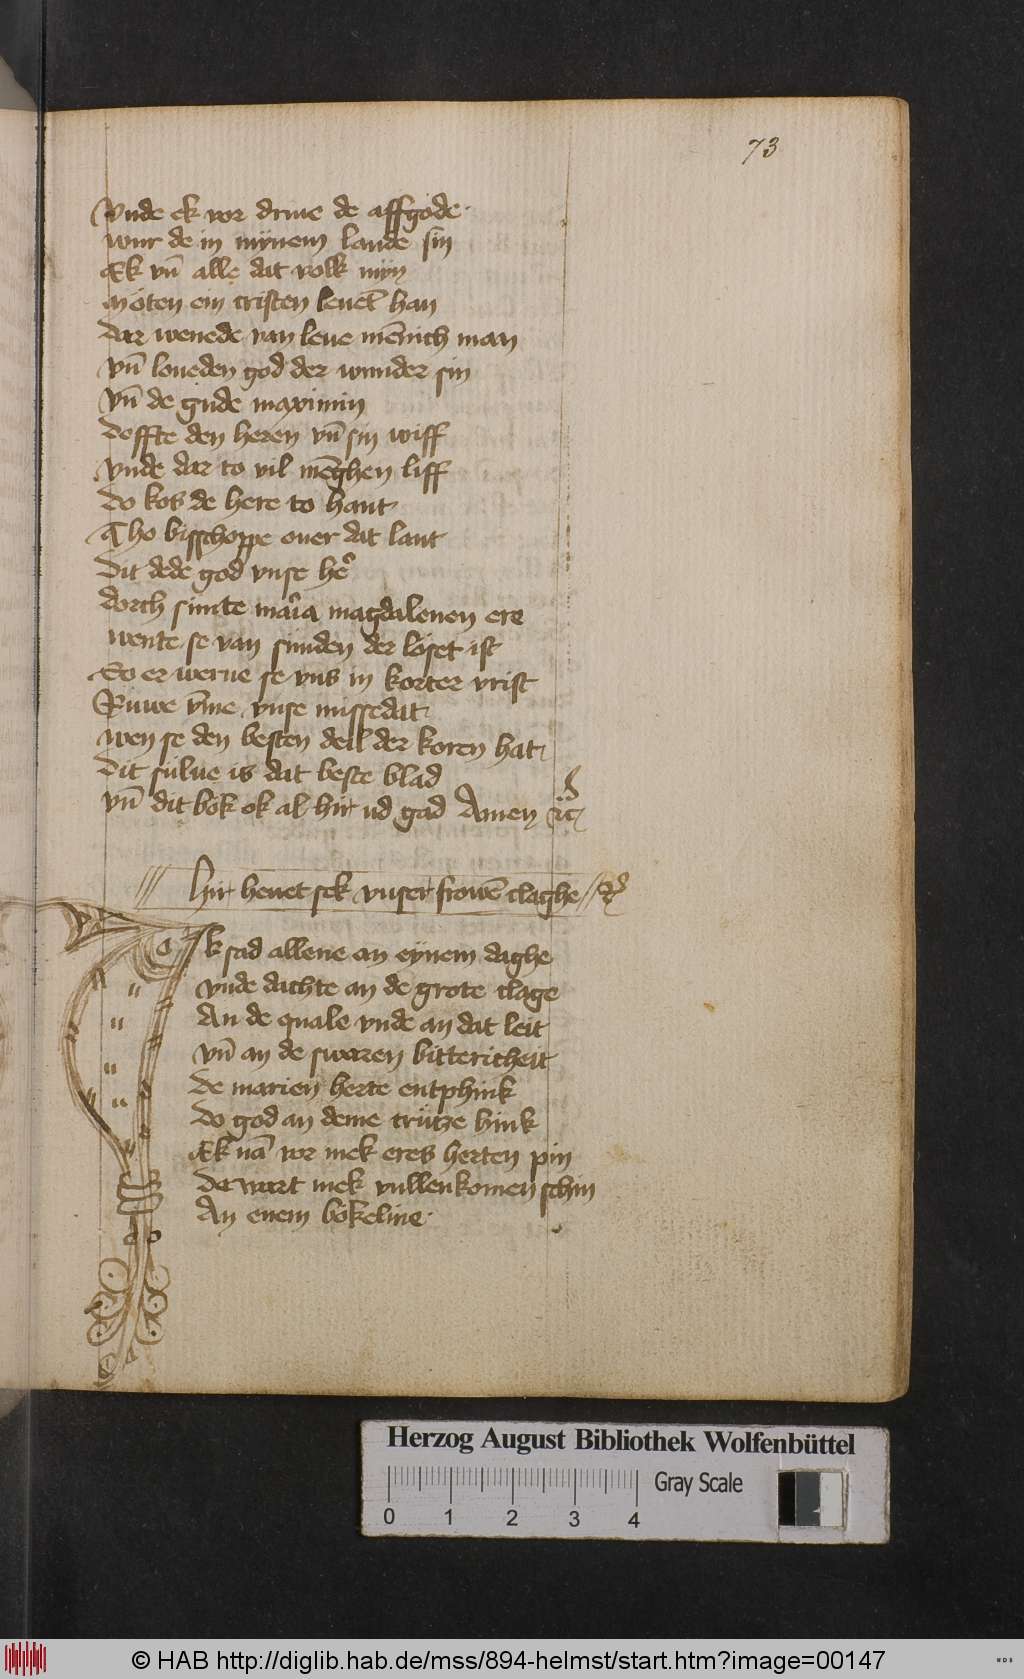 73
vnde ek vor driue de affgode
wur de in mynem lande sin
Ek vn̄ alle dat volk myn
moten em cristen leuēt han
dar wenede van leue mēnich man
vn̄ loueden god der wunder sin
vn̄ de gude maximin
doffte den heren vn̄ sin wiff
vnde dar to vil mēghen liff
do kos de here to hant
Tho bisschoppe ouer dat lant
dit dede god vnse her̄
dorch sunte maria magdalenen ere
wente se van sunden der loset ist
So er werue se vns in korter vrist
Ruwe vm̄e vnse missedat
wen se den besten deil der koren hat
dit sulue is dat beste blad
vn̄ dit bok ok al hir ud gad Amen
hir heuet sek vnser frowē claghe
Ik sad allene an eynem daghe
vnde dachte an de grote clage
An de quale vnde an dat leit
vn̄ an de swaren bittericheit
de marien herte entphink
do god an deme crutze hink
Ek nā vor mek eres herten pin
de wart mek vullenkomen schin
An enem bokeline
Herzog August Bibliothek Wolfenbüttel
Gray Scale
0 1 2 3 4
© HAB http://diglib.hab.de/mss/894-helmst/start.htm?image=00147